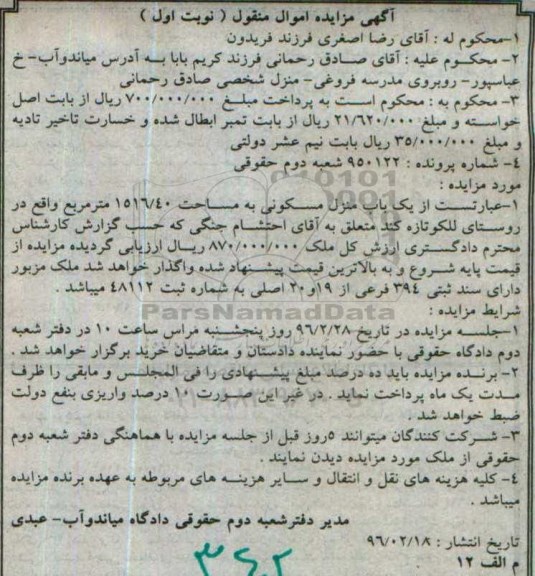 آگهی مزایده اموال منقول ( نوبت اول )
۱-محکوم له : آقای رضا اصغری فرزند فریدون
۲- محکوم علیه : آقای صادق رحمانی فرزند کریم بابا به آدرس میاندوآب- خ
عباسپور- روبروی مدرسه فروغی- منزل شخصی صادق رحمانی
۳- محکوم به : محکوم است به پرداخت مبلغ ۷۰۰/۰۰۰/۰۰۰ ریال از بابت اصل
خواسته و مبلغ ۲۱/۶۲۰/۰۰۰ ریال از بابت تمبر ابطال شده و خسارت تاخیر تادیه
و مبلغ ۳۵/۰۰۰/۰۰۰ ریال بابت نیم عشر دولتی
۴- شماره پرونده : ۹۵۰۱۲۲ شعبه دوم حقوقی
مورد مزایده :
۱-عبارتست از یک باب منزل مسکونی به مساحت ۱۵۱۶/۴۰ مترمربع واقع در
روستای للکوتازه کند متعلق به آقای احتشام جنگی که حسب گزارش کارشناس
محترم دادگستری ارزش کل ملک ۸۷۰/۰۰۰/۰۰۰ ریال ارزیابی گردیده مزایده از
قیمت پایه شروع و به بالاترین قیمت پیشنهاد شده واگذار خواهد شد ملک مزبور
دارای سند ثبتی ۳۹۴ فرعی از ۱۹و۲۰ اصلی به شماره ثبت ۴۸۱۱۲ میباشد .
ParsNamadData
شرایط مزایده :
۱-جلسه مزایده در تاریخ ۹۶/۲/۲۸ روز پنجشنبه راس ساعت ۱۰ در دفتر شعبه
دوم دادگاه حقوقی با حضور نماینده دادستان و متقاضیان خرید برگزار خواهد شد .
۲- برنده مزایده باید ده درصد مبلغ پیشنهادی را فی المجلس و مابقی را ظرف
مدت یک ماه پرداخت نماید . در غیر این صورت ۱۰ درصد واریزی بنفع دولت
ضبط خواهد شد .
۳- شرکت کنندگان میتوانند ۵روز قبل از جلسه مزایده با هماهنگی دفتر شعبه دوم
حقوقی از ملک مورد مزایده دیدن نمایند .
۴- کلیه هزینه های نقل و انتقال و سایر هزینه های مربوطه به عهده برنده مزایده
میباشد .
مدیر دفترشعبه دوم حقوقی دادگاه میاندوآب- عبدی
تاریخ انتشار : ۹۶/۰۲/۱۸
م الف ۱۲